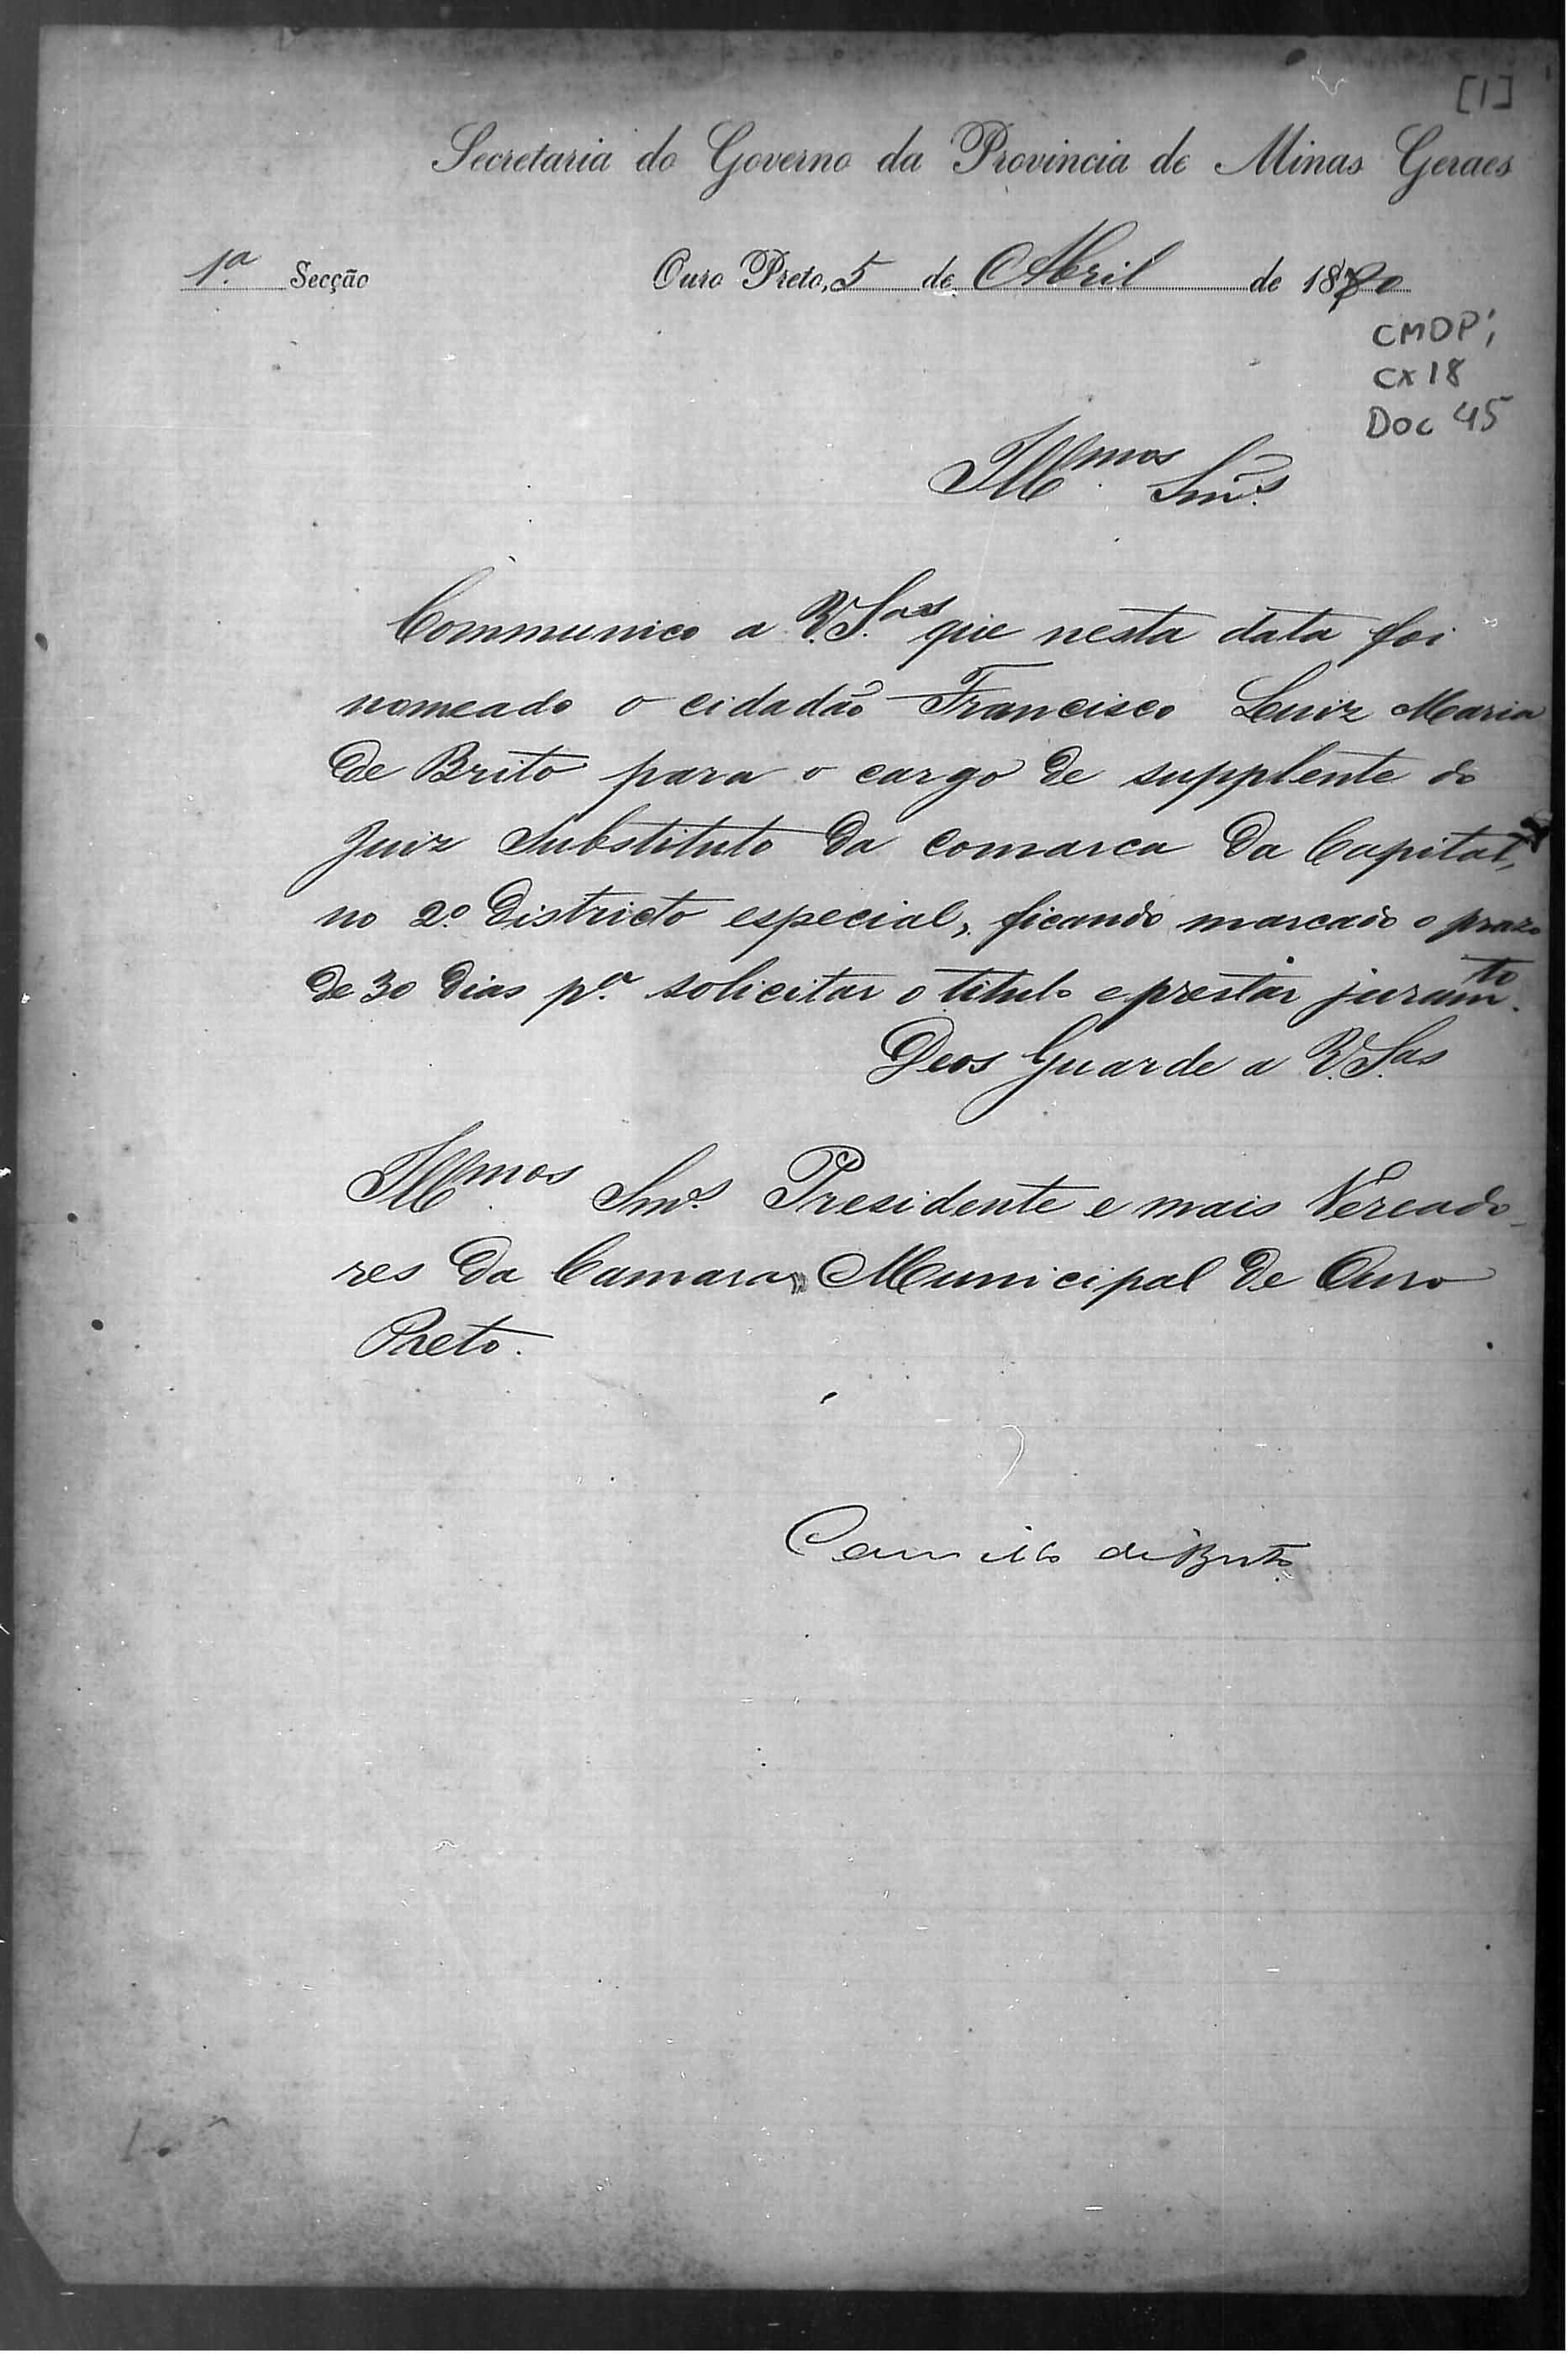 [1]
Secretaria do Governo da Provincia de Minas Geraes
1.ª Secção Ouro Preto, 5 de Abril de 1880
CMOP;
CX 18
Doc 45
Illmos. Snr.s
Communico a V.S.as que nesta data foi
nomeado o cidadão Francisco Luiz Maria
de Brito para o cargo de supplente do
Juiz Substituto da comarca da Capital,
no 2.º districto especial, ficando marcado o prazo
de 30 dias p.ª solicitar o titulo e prestar juramto.
Deos Guarde a V.S.as
Illmos. Snr.s Presidente e mais Vereado-
res da Camara Municipal de Ouro
Preto.
Camillo de Brito